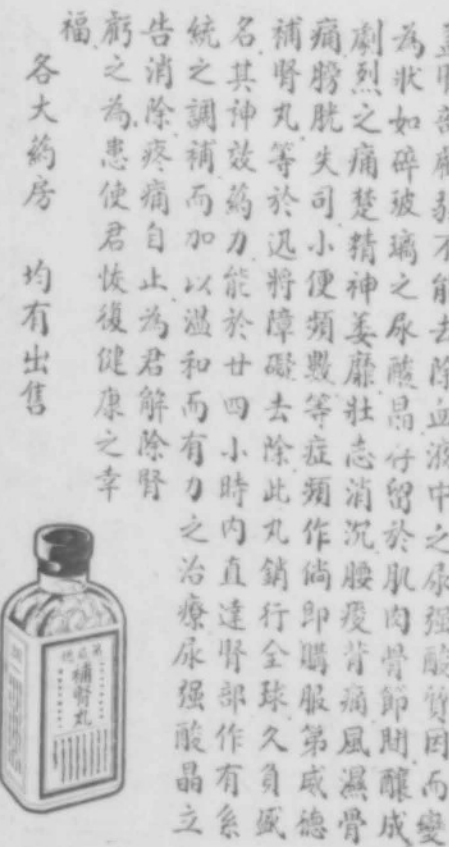 不能去除血液中之尿强酸質因而變
為狀如碎玻璃之尿酸晶仔留於肌肉骨節間釀成
劇烈之痛楚精神萎靡壯志消沉腰痠背痛風濕骨
痛膀胱失司小便頻數等症頻作倘即購服第威德
補腎丸等於迅將障礙去除此丸銷行全球久負盛
名其神效葯力能於廿四小時内直達腎部作有系
統之調補而加以溫和而有力之治療尿强酸晶立
告消除疼痛自止為君解除腎
虧之為患使君恢復健康之幸
福
各大葯房 均有出售
補腎丸